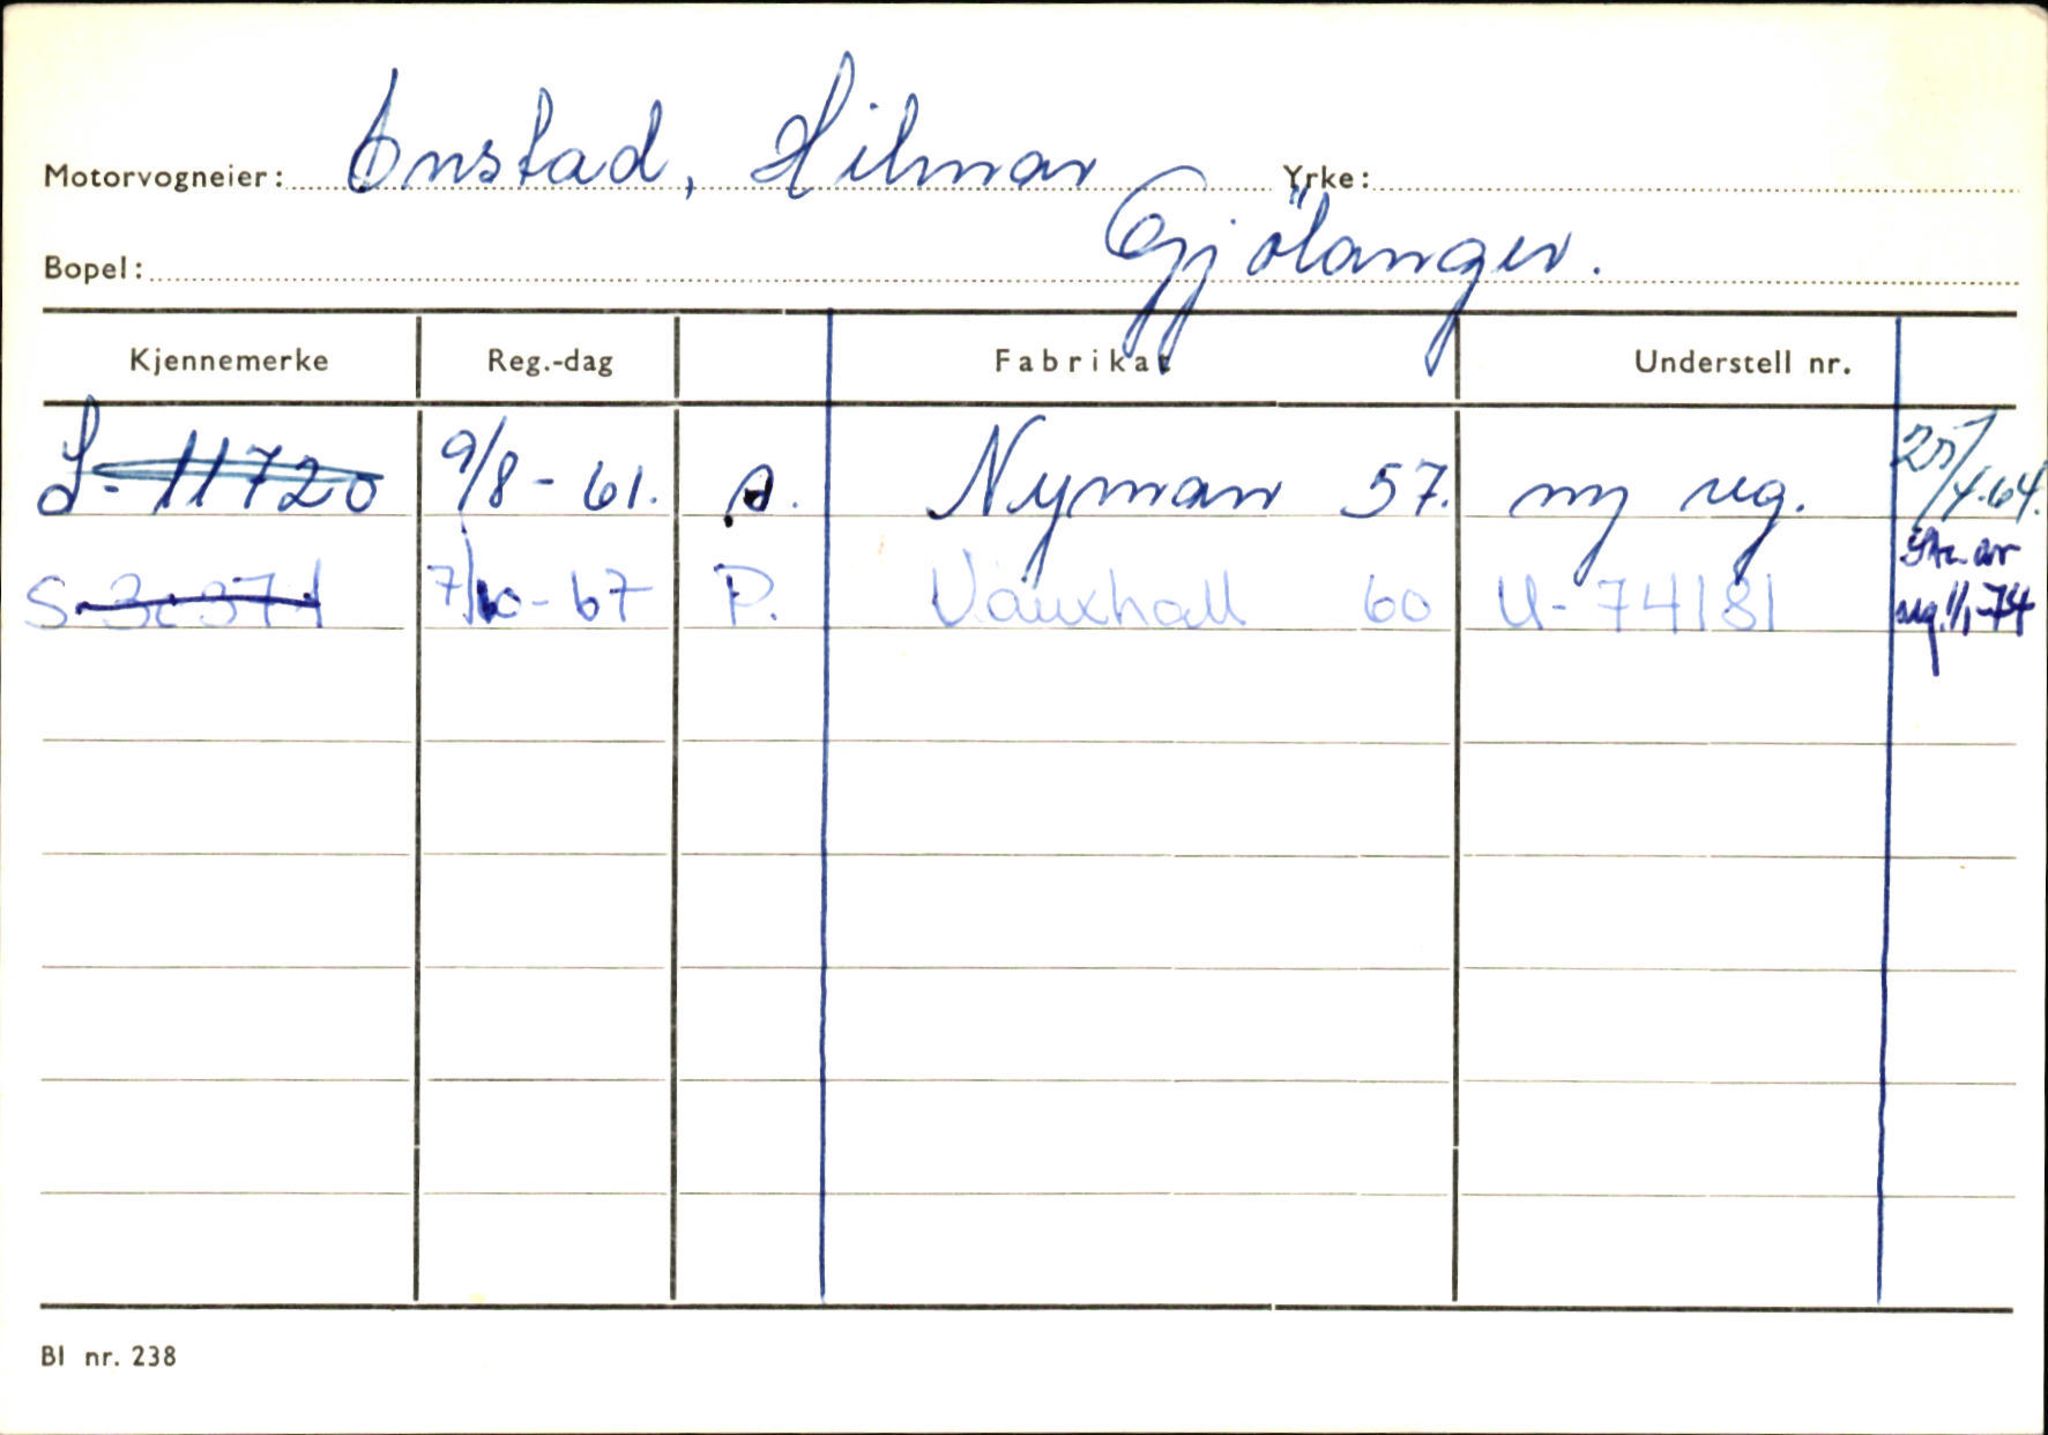 Motorvogneier: Onstad, Hilmar Yrke:
Bopel: Gjölanger.
Kjennemerke Reg.-dag Fabrikat Understell nr.
S-11720 9/8-61. Nyman 57. ny reg. 25/4-64.
S-30371 7/10-67 P. Vauxhall 60 U-74181 Str. av
reg. 1/1-74
Bl nr. 238